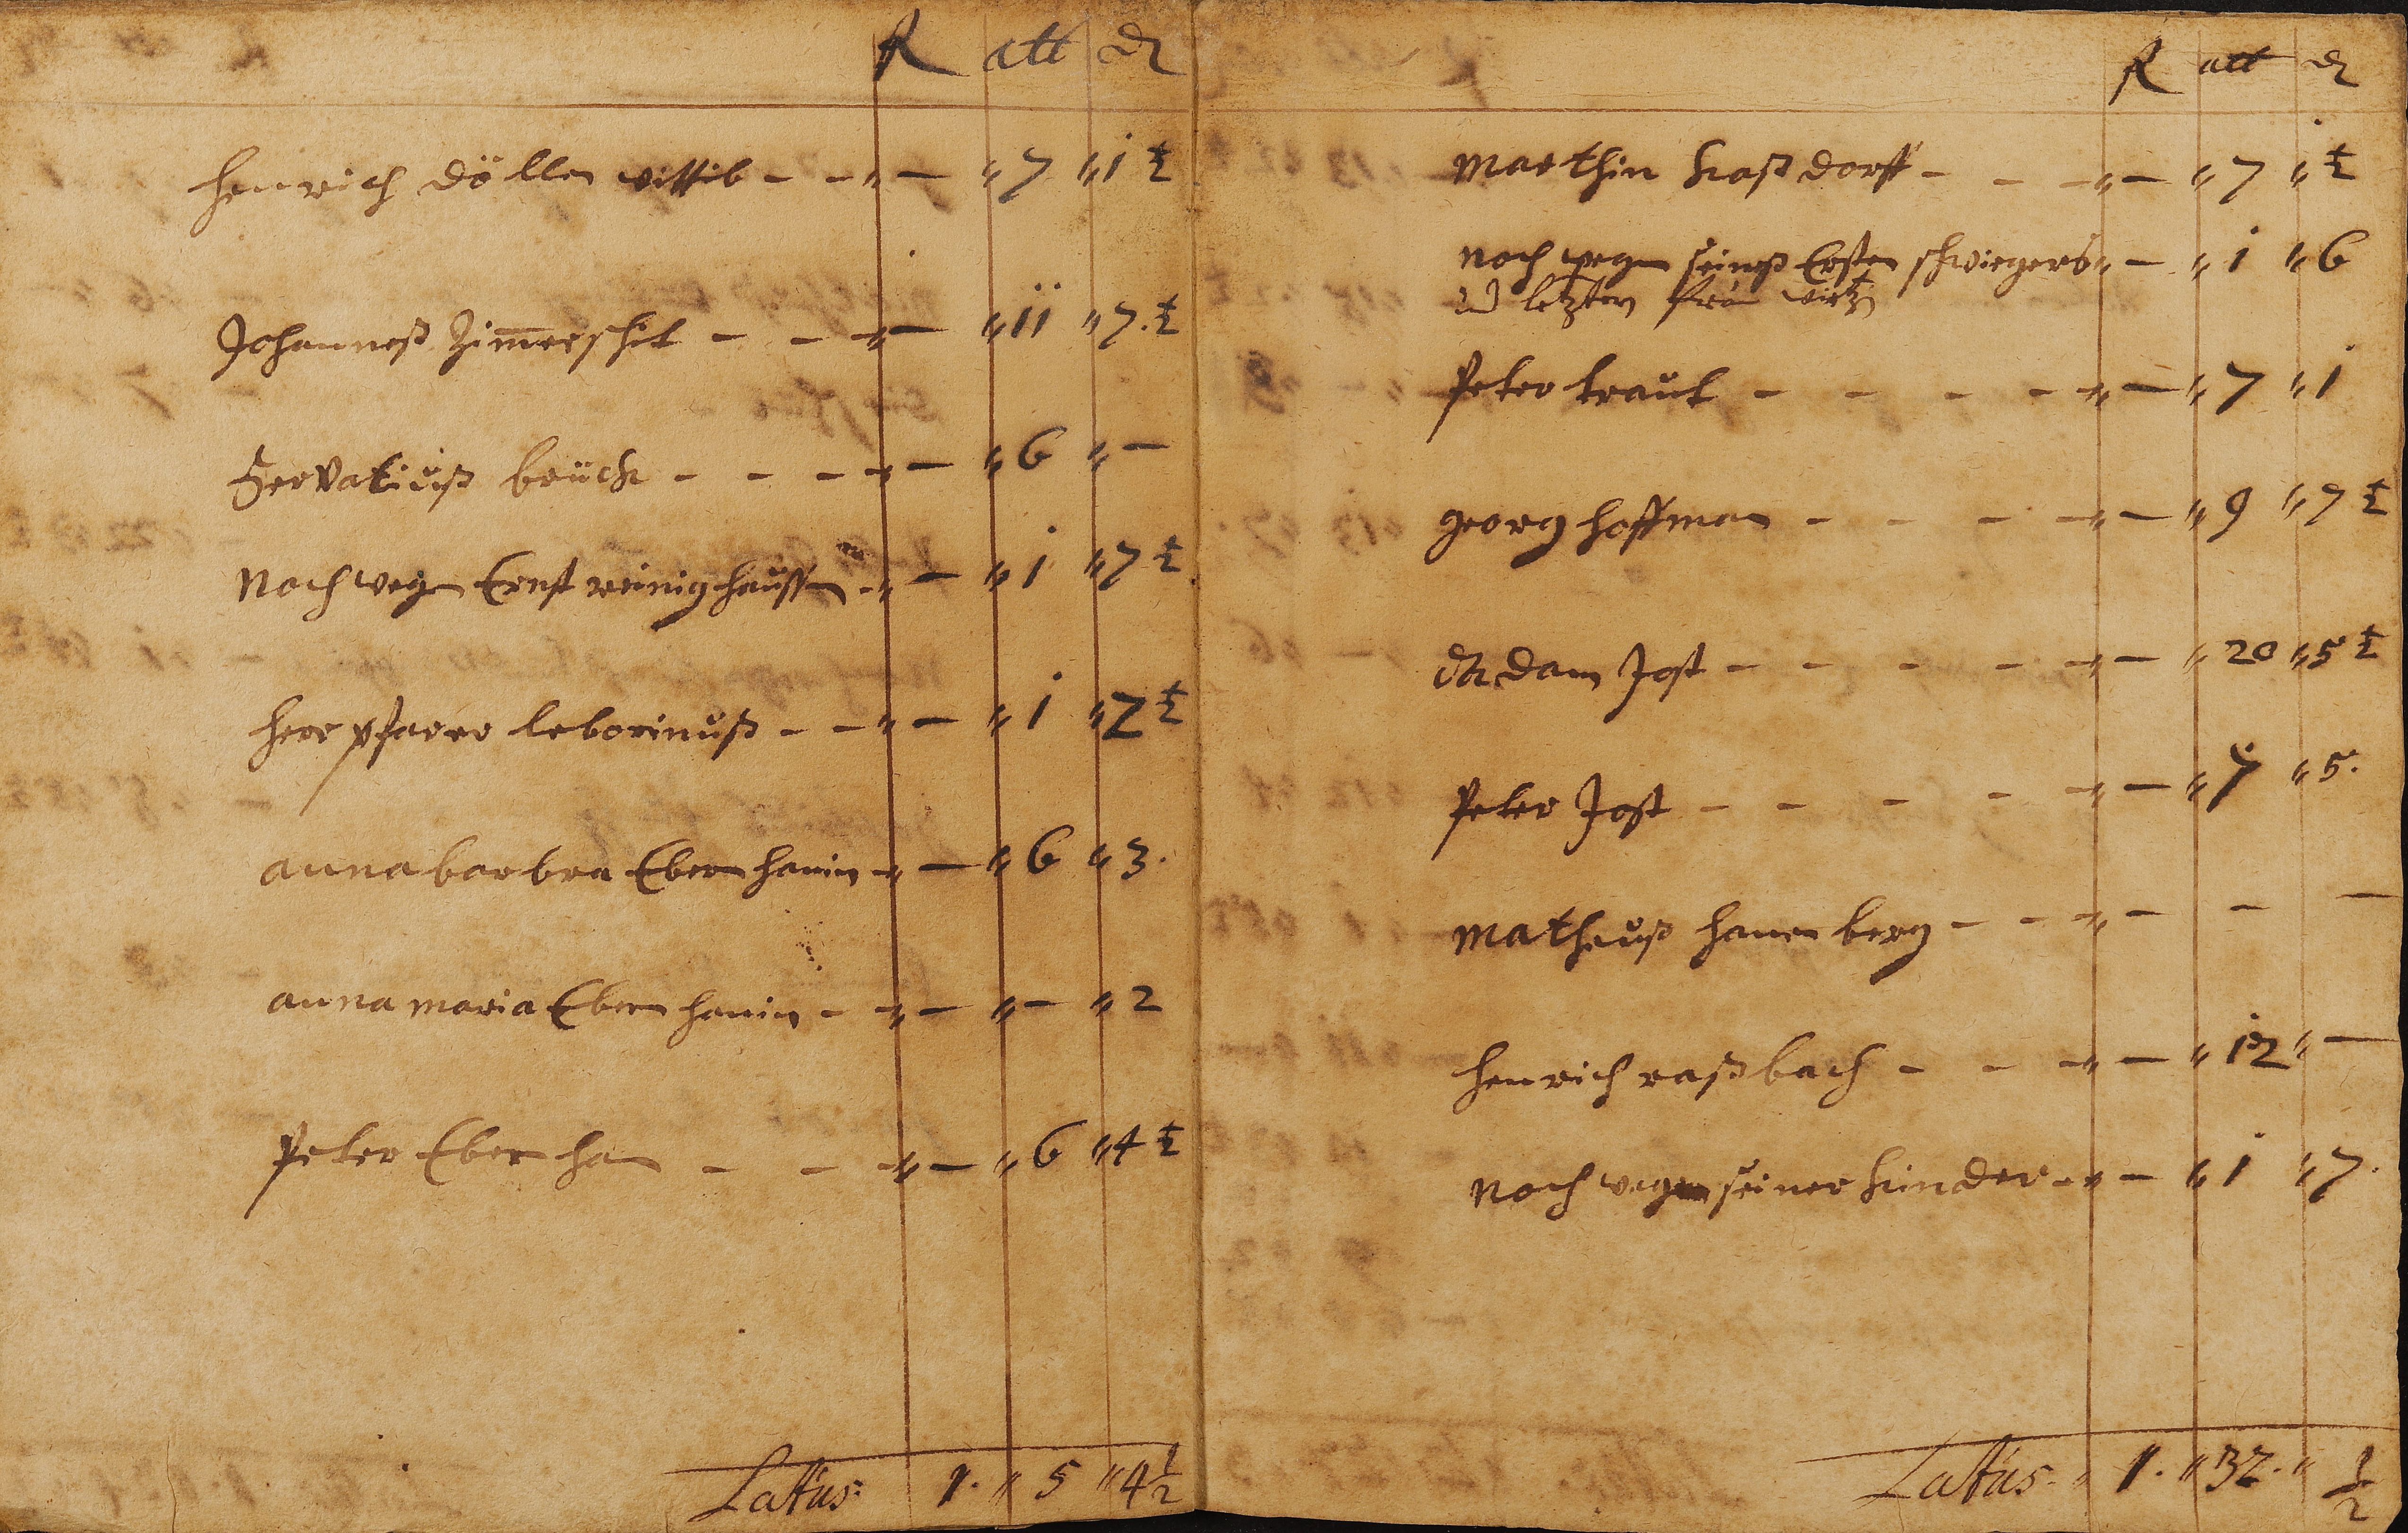 R att ₰
henrich döllen wittib - - " — " 7 " 1 ½
Johanneß Zim̅erschit - - " — " 11 " 7. ½
Servatiuß brück - - - " — " 6 " —
Noch wegen Ernst reinighaussen - " — " 1 " 7 ½
herr pfarrer leborinuß - - " — " 1 " 7 ½
anna barbra Ebern hanin - " — " 6 " 3.
anna maria Ebern hanin - " — " — " 2
Peter Ebern han - - " — " 6 " 4 ½
Lattus: 1. " 5 " 4 ½
R att ₰
Marthin Kaßdorff - - - " — " 7 " ½
Noch wegen seineß Ersten schwiegers " — " 1 " 6
letzten
Peter traut - - - - " — " 7 " 1
georg hoffman - - - " — " 9 " 7 ½
Adam Jost - - - - " — " 20 " 5 ½
Peter Jost - - - - " — " 7 " 5.
Matheuß hanenberg - - " — — —
henrich raßbach - - - " — " 12 " —
Noch wegen seiner Kinder - " — " 1 " 7.
Lattus. " 1. " 32. " ½